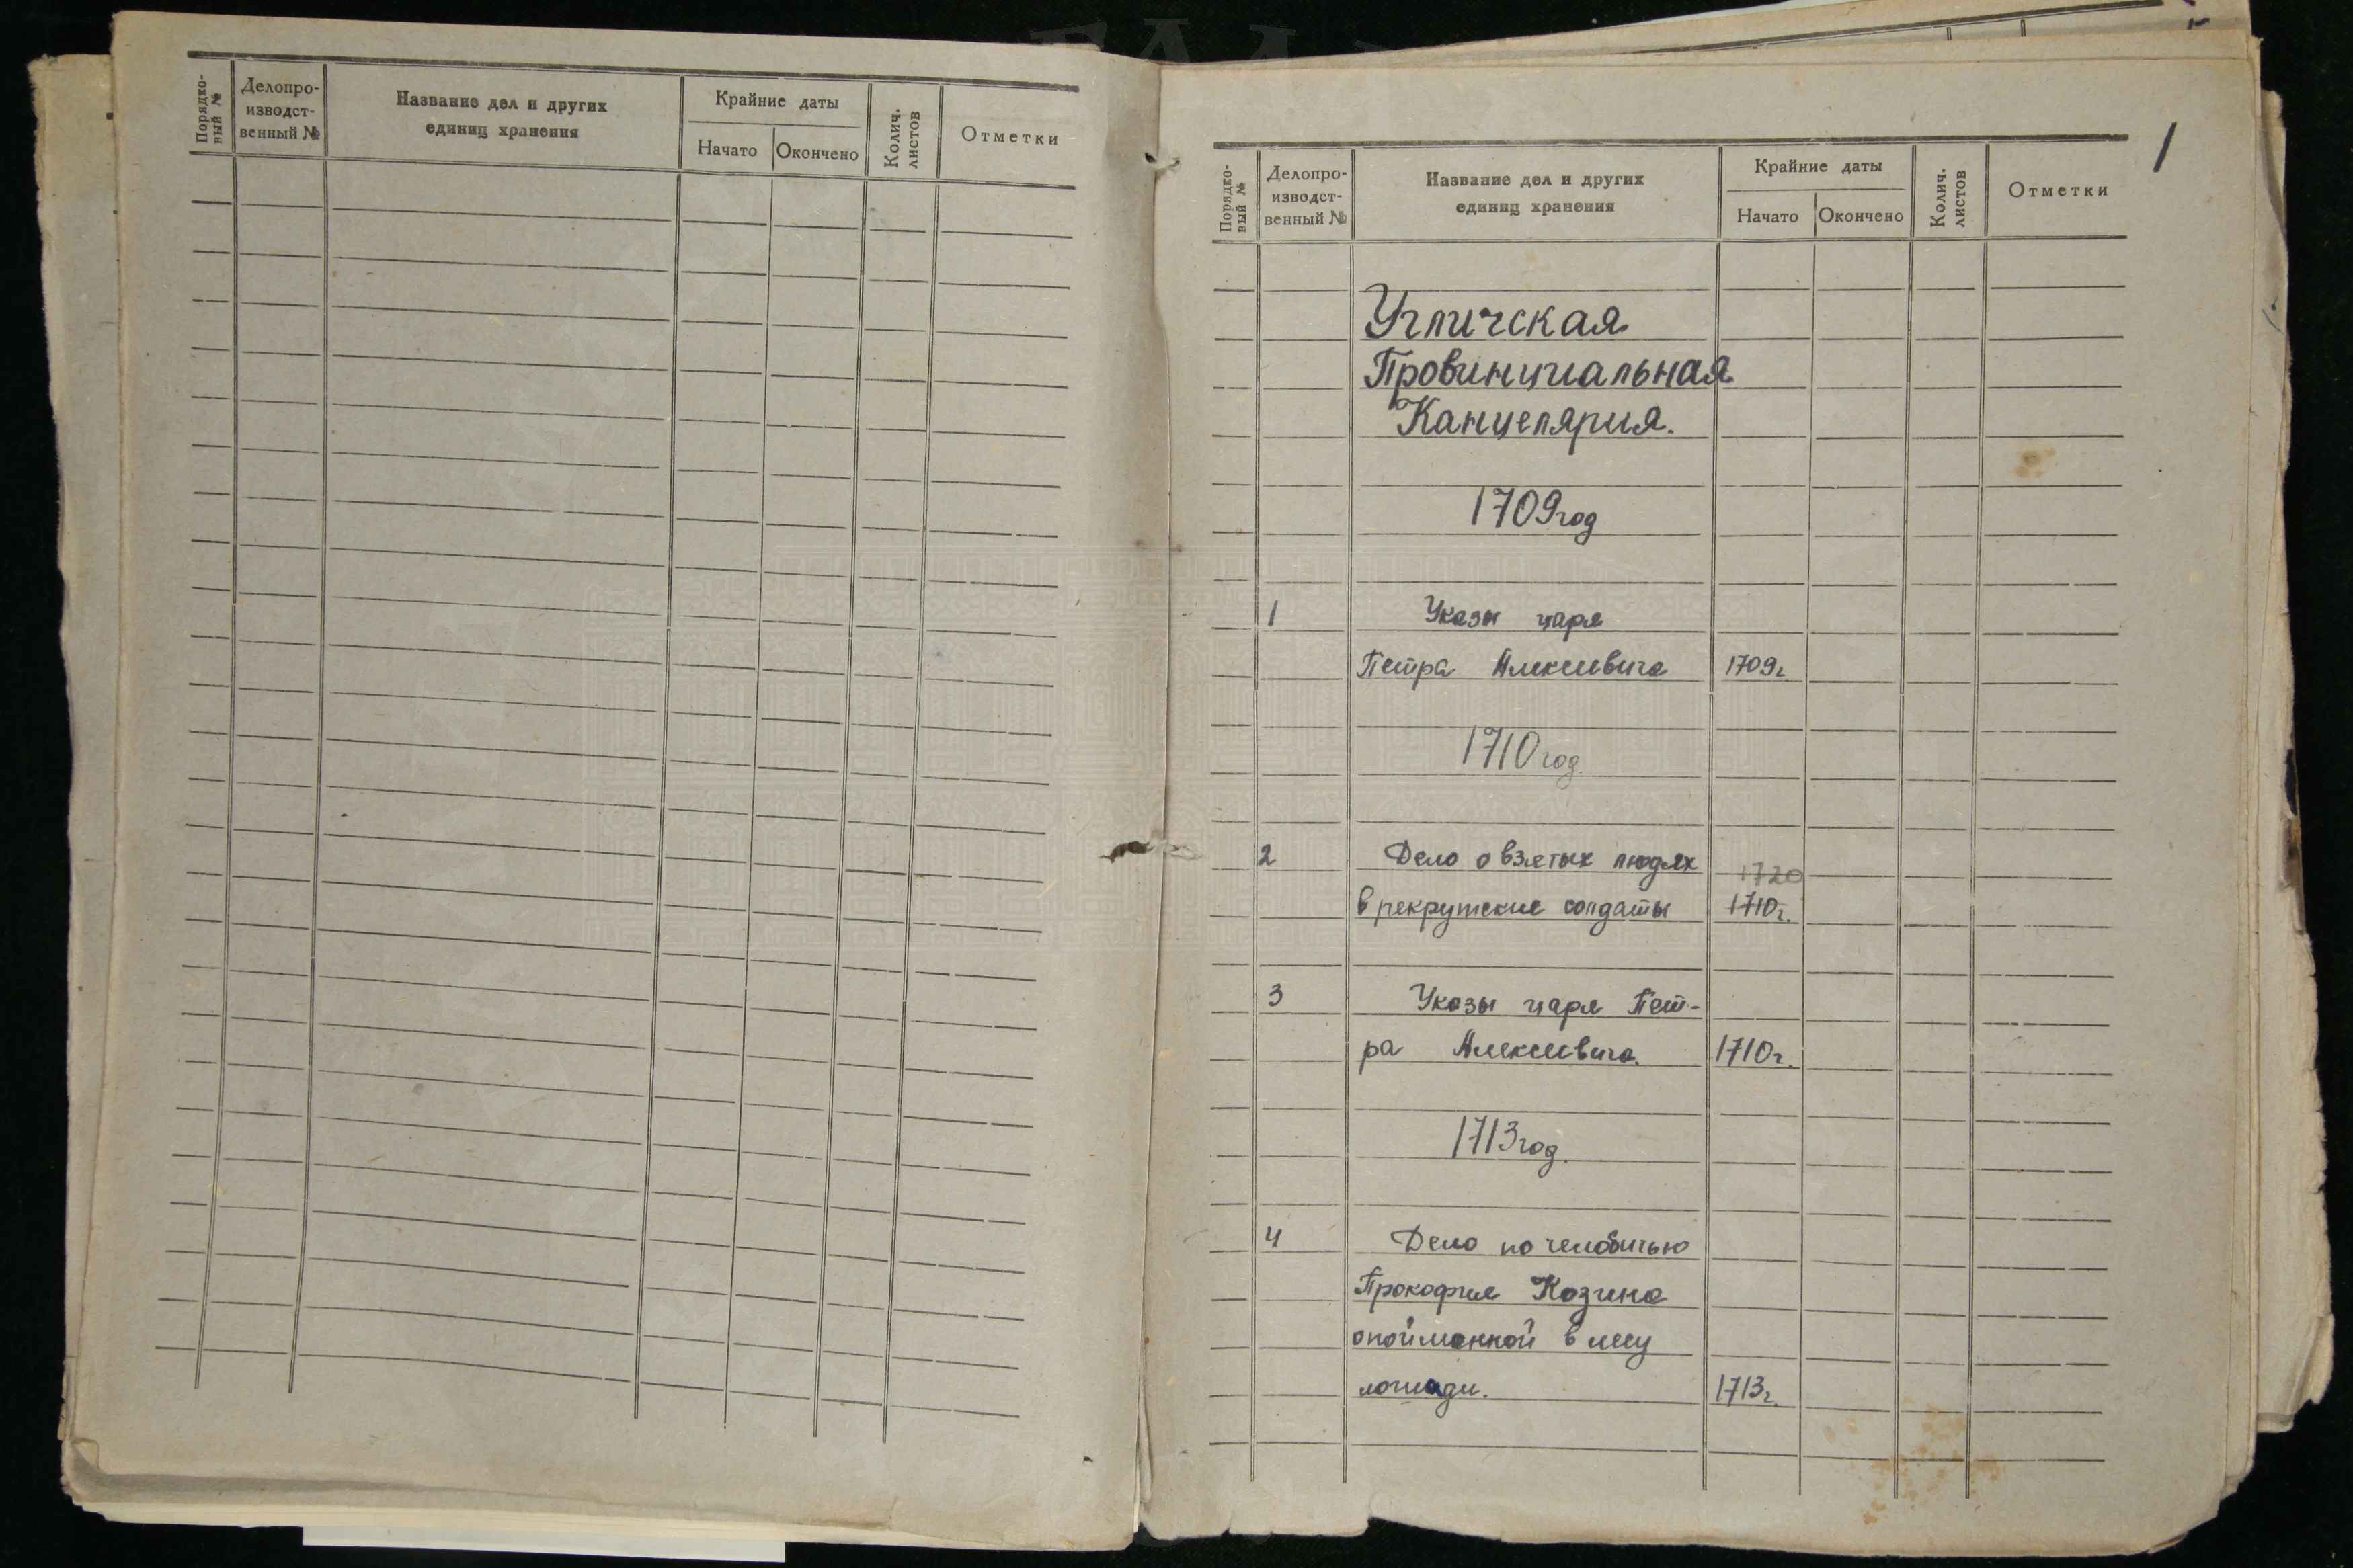 Порядко-
вый №
Делопро-
изводст-
венный №
Название дел и других
единиц хранения
Крайние даты
Начато
Окончено
Колич.
листов
Отметки
1
Порядко-
вый №
Делопро-
изводст-
венный №
Название дел и других
единиц хранения
Крайние даты
Начато
Окончено
Колич.
листов
Отметки
Угличская
Провинциальная
Канцелярия.
1709 год
1 Указы царя
Петра Алексеевича 1709г
1710 год
2 Дело о взятых людях 1720
в рекрутские солдаты 1710г.
3 Указы царя Пет-
ра Алексеевича. 1710г.
1713 год.
4 Дело по челобитью
Прокофия Козина
о пойманной в лесу
лошади. 1713г.